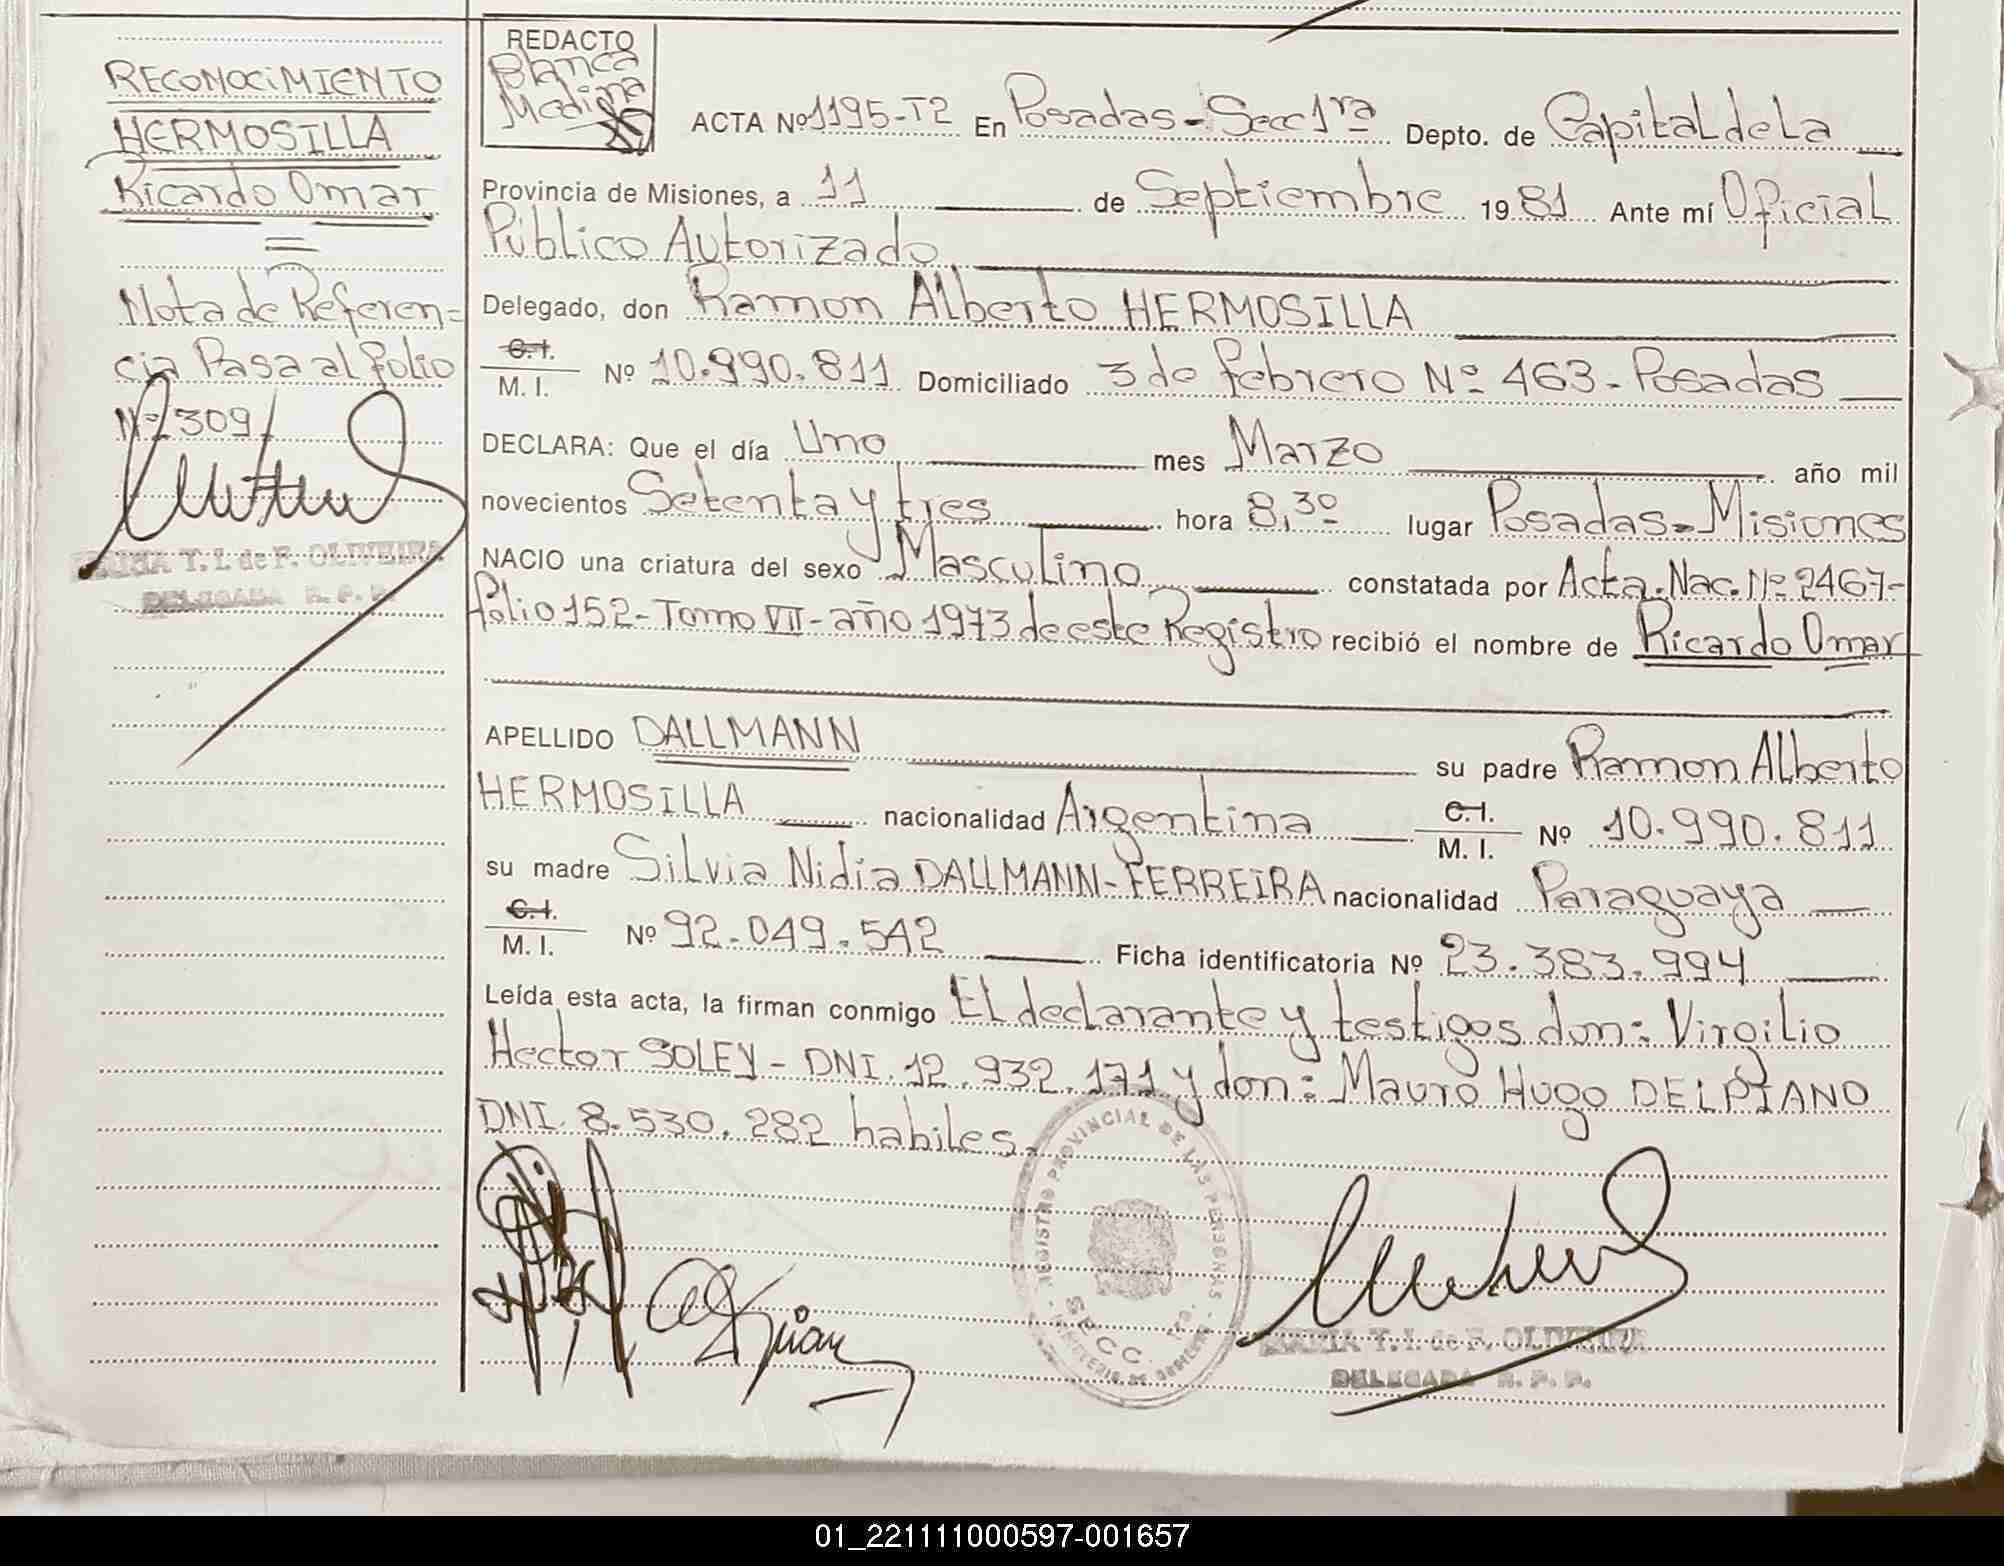 RECONOCIMIENTO
HERMOSILLA
Ricardo Omar
Nota de Referen=
cia Pasa al folio
Nº 309
MARIA T. I. de F. OLIVEIRA
DELEGADA R. P. P.
REDACTO
Blanca
Medina
ACTA Nº 1195-T2 En Posadas - Secc 1ra Depto. de Capital de La
Provincia de Misiones, a 11 de Septiembre 1981 Ante mí Oficial
Público Autorizado
Delegado, don Ramon Alberto HERMOSILLA
C.I. / M. I. Nº 10.990.811 Domiciliado 3 de febrero Nº 463 - Posadas
DECLARA: Que el día Uno mes Marzo año mil
novecientos Setenta y tres hora 8,30 lugar Posadas - Misiones
NACIO una criatura del sexo Masculino constatada por Acta. Nac. Nº 2467-
folio 152 - Tomo VII - año 1973 de este Registro recibió el nombre de Ricardo Omar
APELLIDO DALLMANN su padre Ramon Alberto
HERMOSILLA nacionalidad Argentina C.I. / M. I. Nº 10.990.811
su madre Silvia Nidia DALLMANN-FERREIRA nacionalidad Paraguaya
C.I. / M. I. Nº 92.049.542 Ficha identificatoria Nº 23.383.994
Leída esta acta, la firman conmigo El declarante y testigos don: Virgilio
Hector SOLEY - DNI. 12.932.171 y don: Mauro Hugo DELPIANO
DNI. 8.530.282 habiles.
REGISTRO PROVINCIAL DE LAS PERSONAS
SECC. 1ra.
MINISTERIO DE GOBIERNO
MARIA T. I. de F. OLIVEIRA
DELEGADA R. P. P.
01_221111000597-001657